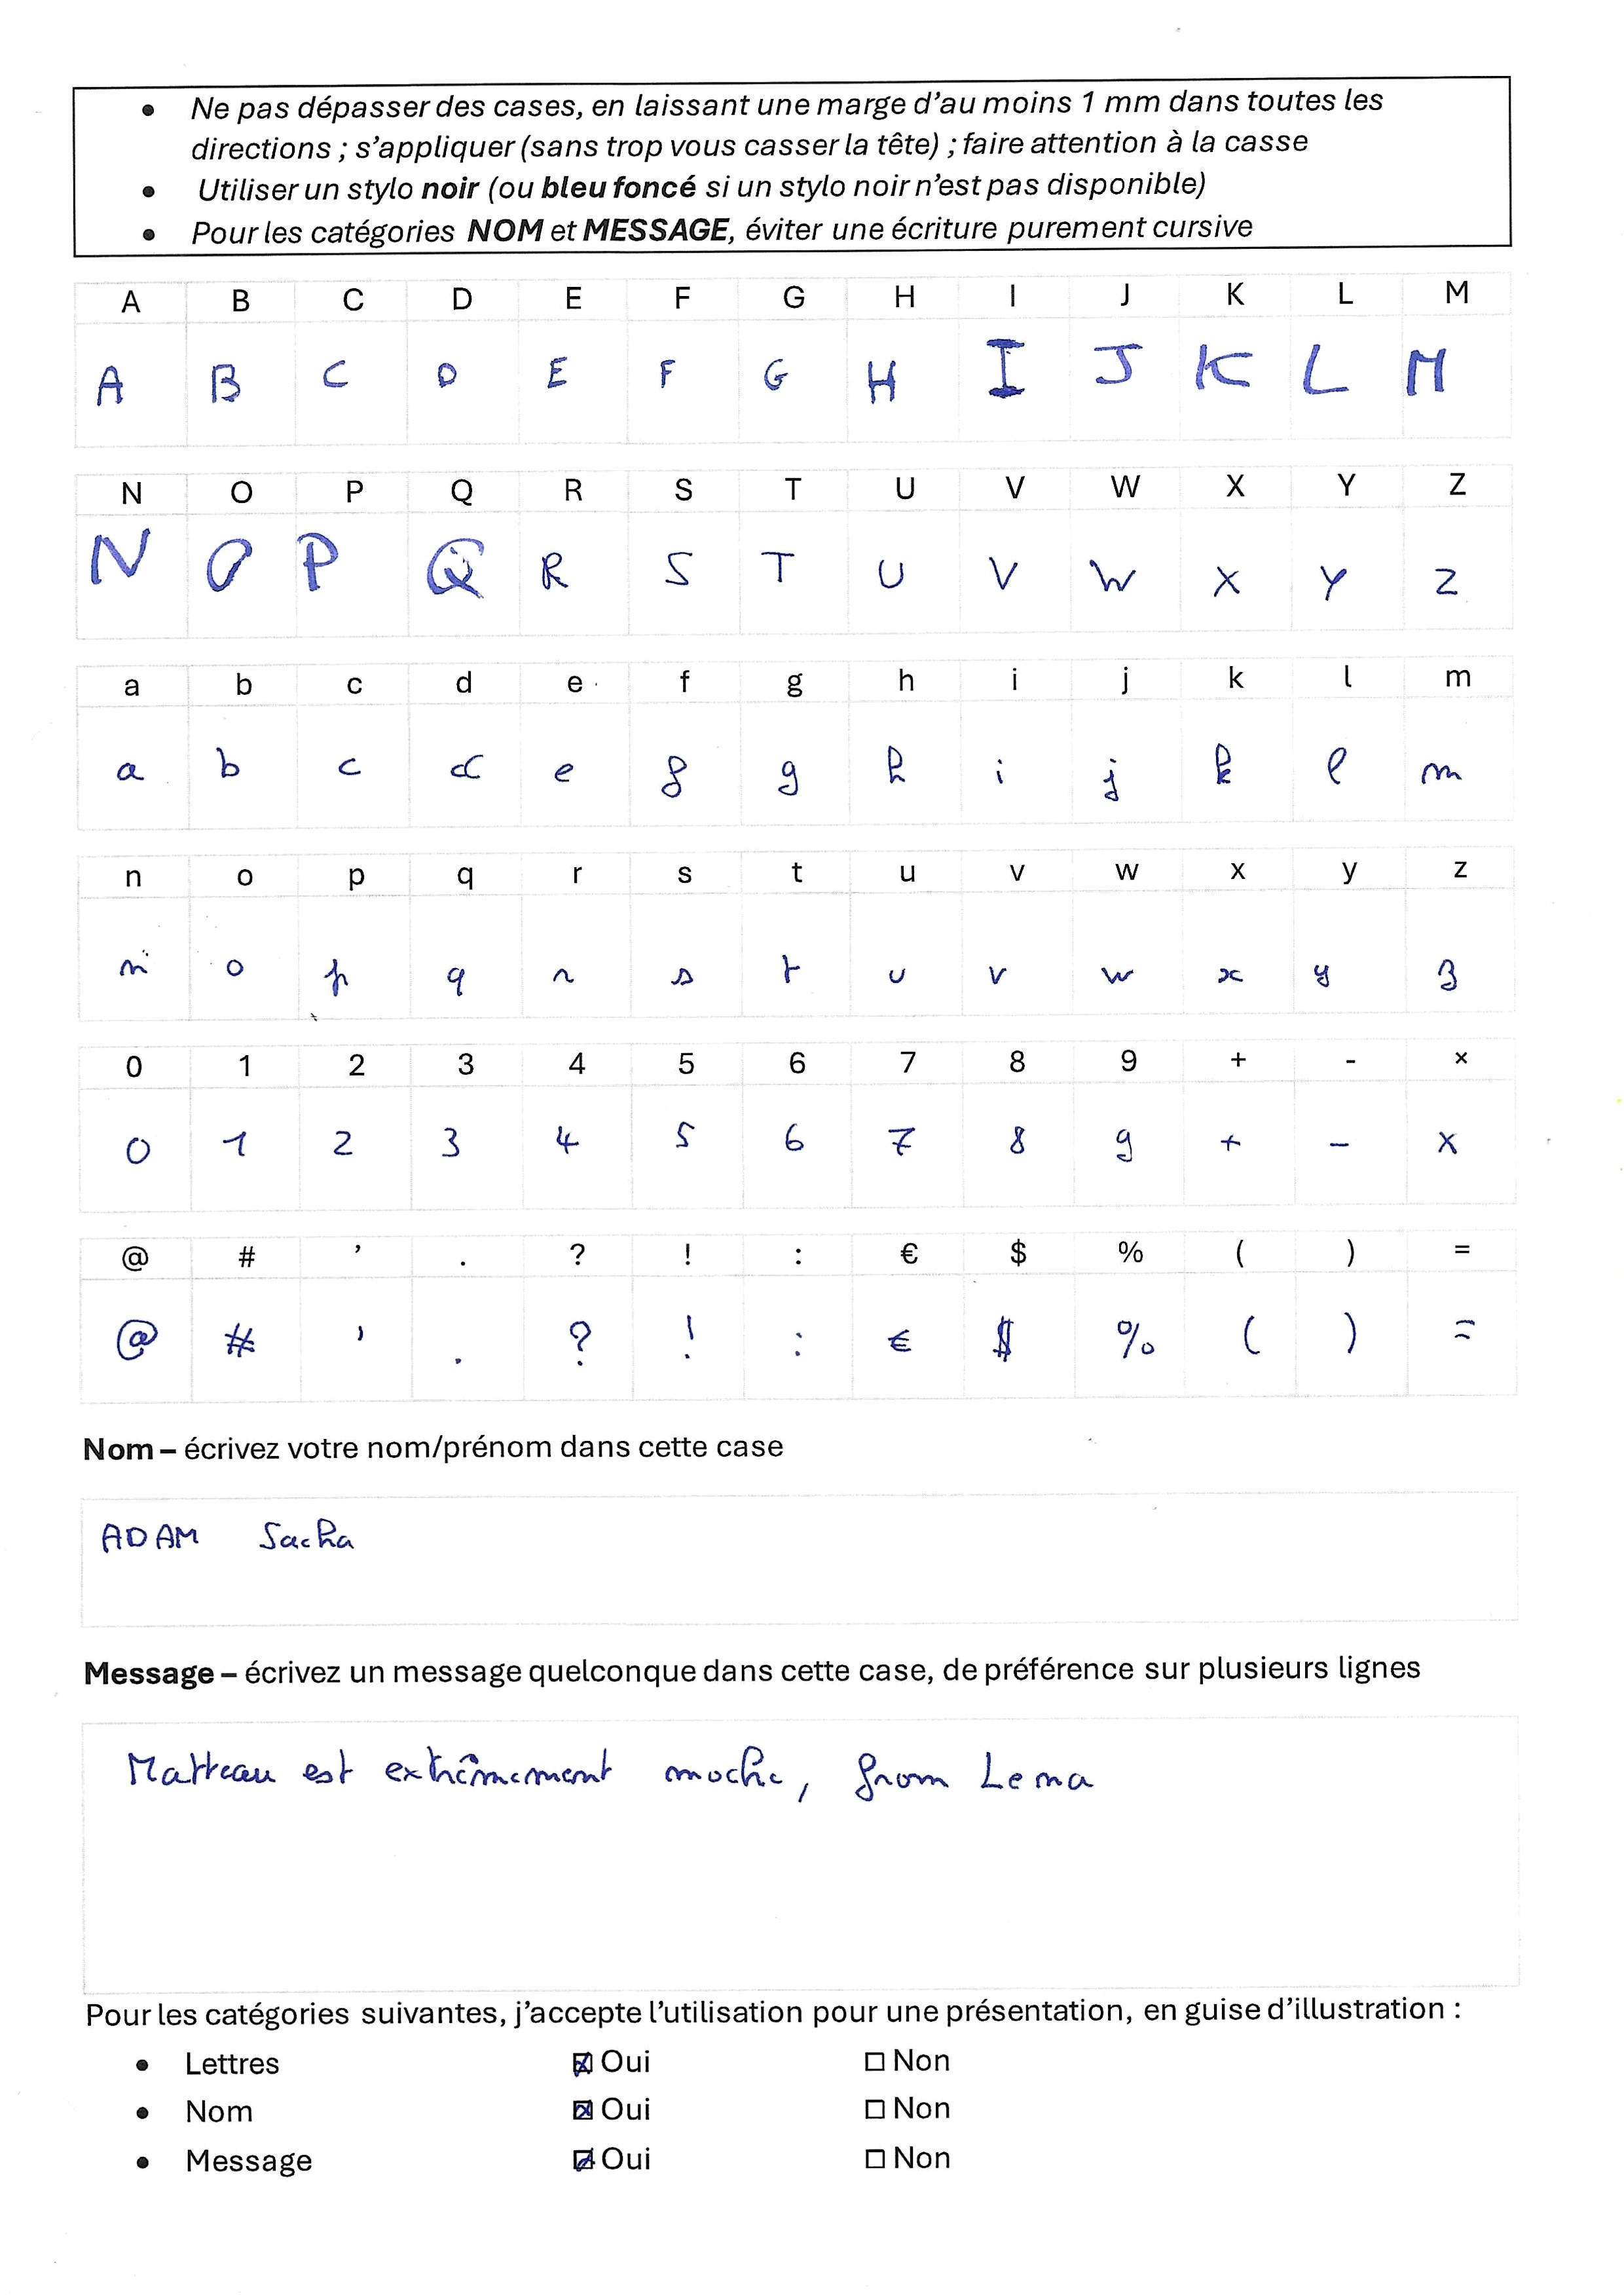 • Ne pas dépasser des cases, en laissant une marge d’au moins 1 mm dans toutes les
directions ; s’appliquer (sans trop vous casser la tête) ; faire attention à la casse
• Utiliser un stylo noir (ou bleu foncé si un stylo noir n’est pas disponible)
• Pour les catégories NOM et MESSAGE, éviter une écriture purement cursive
A B C D E F G H I J K L M
A B C D E F G H I J K L M
N O P Q R S T U V W X Y Z
N O P Q R S T U V W X Y Z
a b c d e f g h i j k l m
a b c d e f g h i j k l m
n o p q r s t u v w x y z
n o p q r s t u v w x y z
0 1 2 3 4 5 6 7 8 9 + - ×
0 1 2 3 4 5 6 7 8 9 + - ×
@ # ’ . ? ! : € $ % ( ) =
@ # ’ . ? ! : € $ % ( ) =
Nom – écrivez votre nom/prénom dans cette case
ADAM Sacha
Message – écrivez un message quelconque dans cette case, de préférence sur plusieurs lignes
Matteau est extrêmement moche, from Lena
Pour les catégories suivantes, j’accepte l’utilisation pour une présentation, en guise d’illustration :
• Lettres ☒ Oui ☐ Non
• Nom ☒ Oui ☐ Non
• Message ☒ Oui ☐ Non